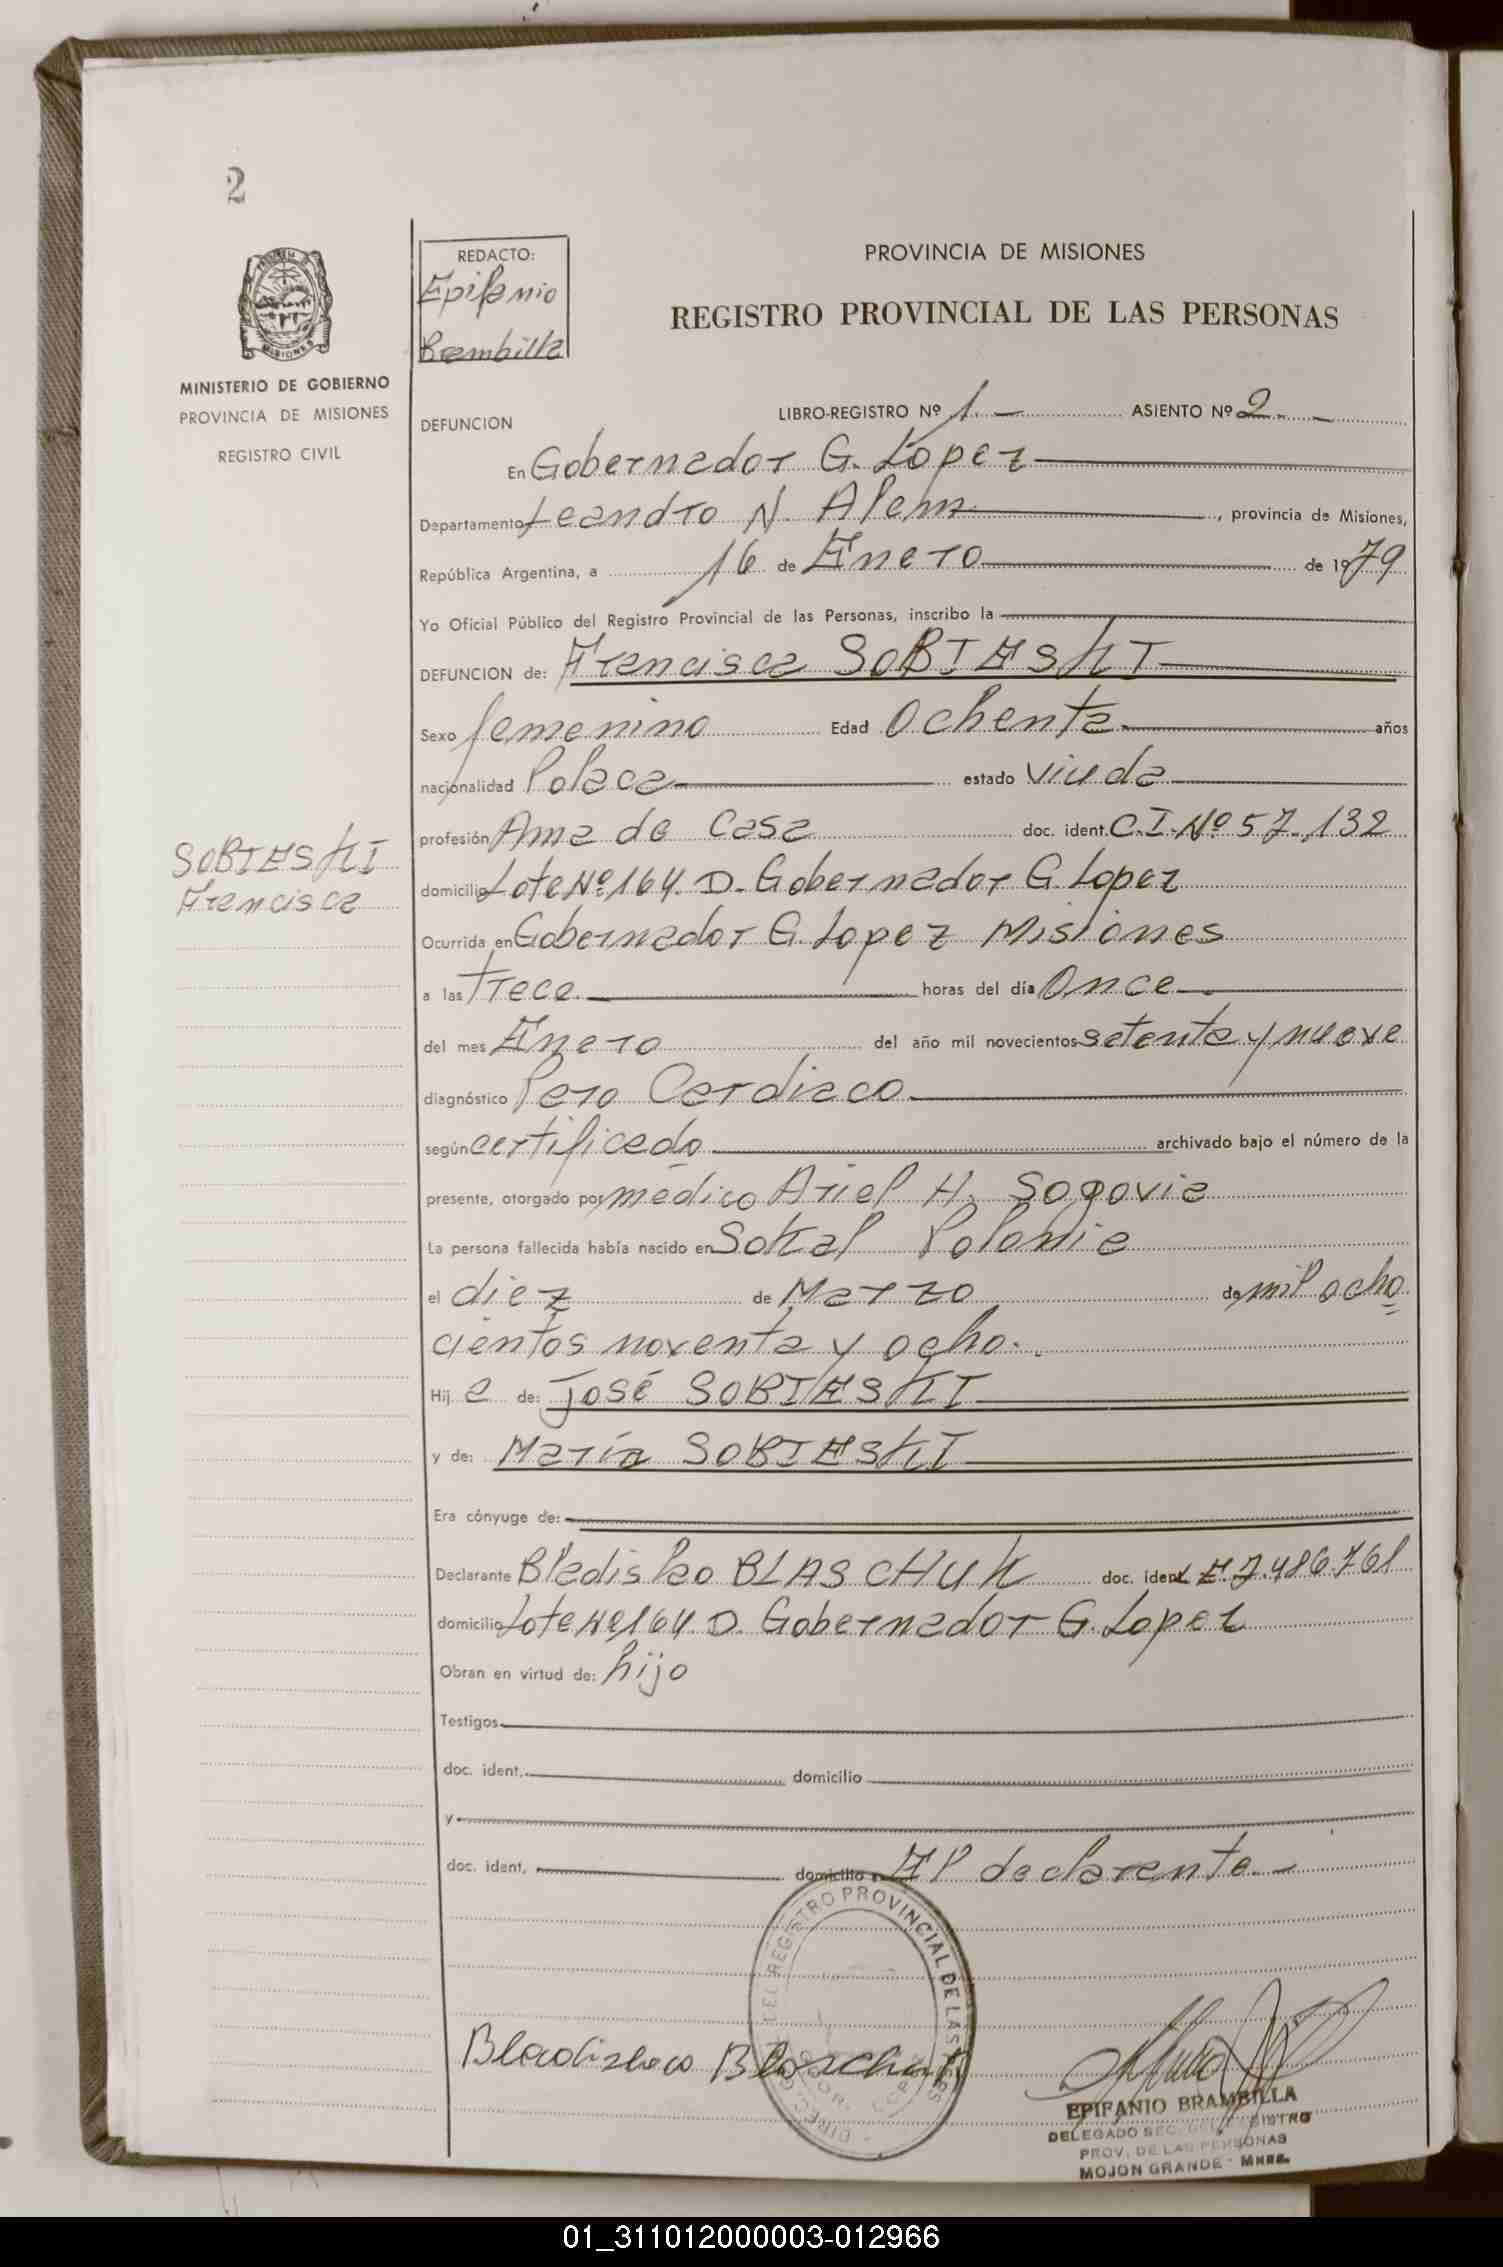 2
REDACTO:
Epifanio
Brambilla
PROVINCIA DE MISIONES
REGISTRO PROVINCIAL DE LAS PERSONAS
MISIONES
MINISTERIO DE GOBIERNO
PROVINCIA DE MISIONES
REGISTRO CIVIL
DEFUNCION LIBRO-REGISTRO Nº 1.- ASIENTO Nº 2.-
En Gobernador G. Lopez
Departamento Leandro N. Alem, provincia de Misiones,
República Argentina, a 16 de Enero de 1979
Yo Oficial Público del Registro Provincial de las Personas, inscribo la
DEFUNCION de: Francisca SOBIESKI
Sexo femenino Edad Ochenta años
nacionalidad Polaca estado viuda
profesión Ama de Casa doc. ident. C.I.Nº 57.132
SOBIESKI
Francisca
domicilio Lote Nº 164. D. Gobernador G. Lopez
Ocurrida en Gobernador G. Lopez Misiones
a las Trece horas del día Once
del mes Enero del año mil novecientos setenta y nueve
diagnóstico Paro Cardiaco
según certificado archivado bajo el número de la
presente, otorgado por médico Ariel H. Sogovia
La persona fallecida había nacido en Sokal Polonia
el diez de Marzo de mil ocho
cientos noventa y ocho.
Hij a de: José SOBIESKI
y de: María SOBIESKI
Era cónyuge de:
Declarante Bladislao BLASCHUK doc. ident. L.E. 7.486.761
domicilio Lote Nº 164. D. Gobernador G. Lopez
Obran en virtud de: hijo
Testigos
doc. ident. domicilio
y
doc. ident. domicilio El declarante.-
REGISTRO PROVINCIAL DE LAS PERS
Bladislao Blaschuk
EPIFANIO BRAMBILLA
DELEGADO SEC. DEL REGISTRO
PROV. DE LAS PERSONAS
MOJON GRANDE - Mnes.
01_311012000003-012966